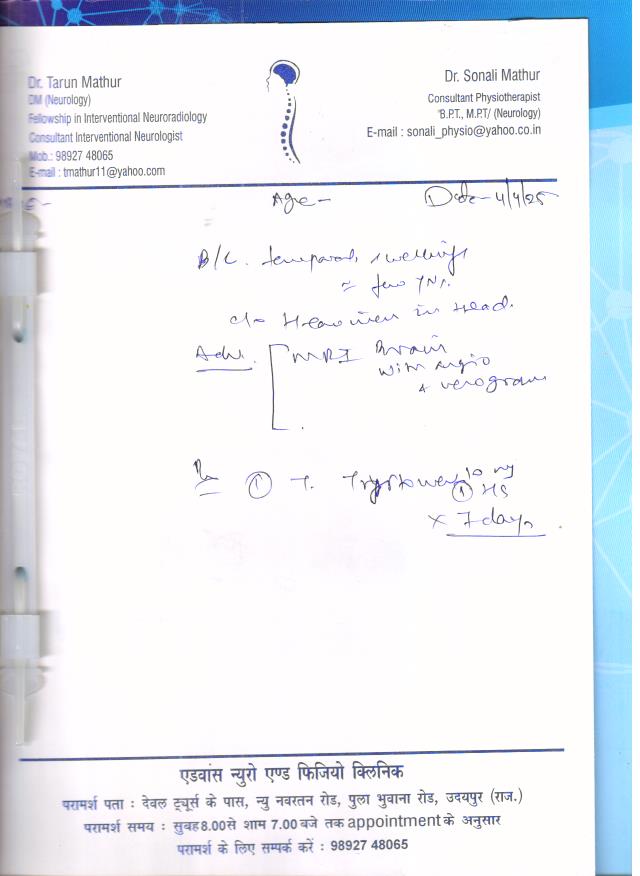 Dr. Tarun Mathur
DM (Neurology)
Fellowship in Interventional Neuroradiology
Consultant Interventional Neurologist
Mob.: 98927 48065
E-mail : tmathur11@yahoo.com
Dr. Sonali Mathur
Consultant Physiotherapist
B.P.T., M.P.T/ (Neurology)
E-mail : sonali_physio@yahoo.co.in
Age - Date - 4/4/25
B/L. temporal swellings
few yrs.
c/o Heaviness in Head.
Adv. MRI Brain
with angio
+ venogram
Rx ① T. 10 mg
① HS
x 7 days
एडवांस न्युरो एण्ड फिजियो क्लिनिक
परामर्श पता : देवल ट्यूर्स के पास, न्यु नवरतन रोड, पुला भुवाना रोड, उदयपुर (राज.)
परामर्श समय : सुबह 8.00 से शाम 7.00 बजे तक appointment के अनुसार
परामर्श के लिए सम्पर्क करें : 98927 48065